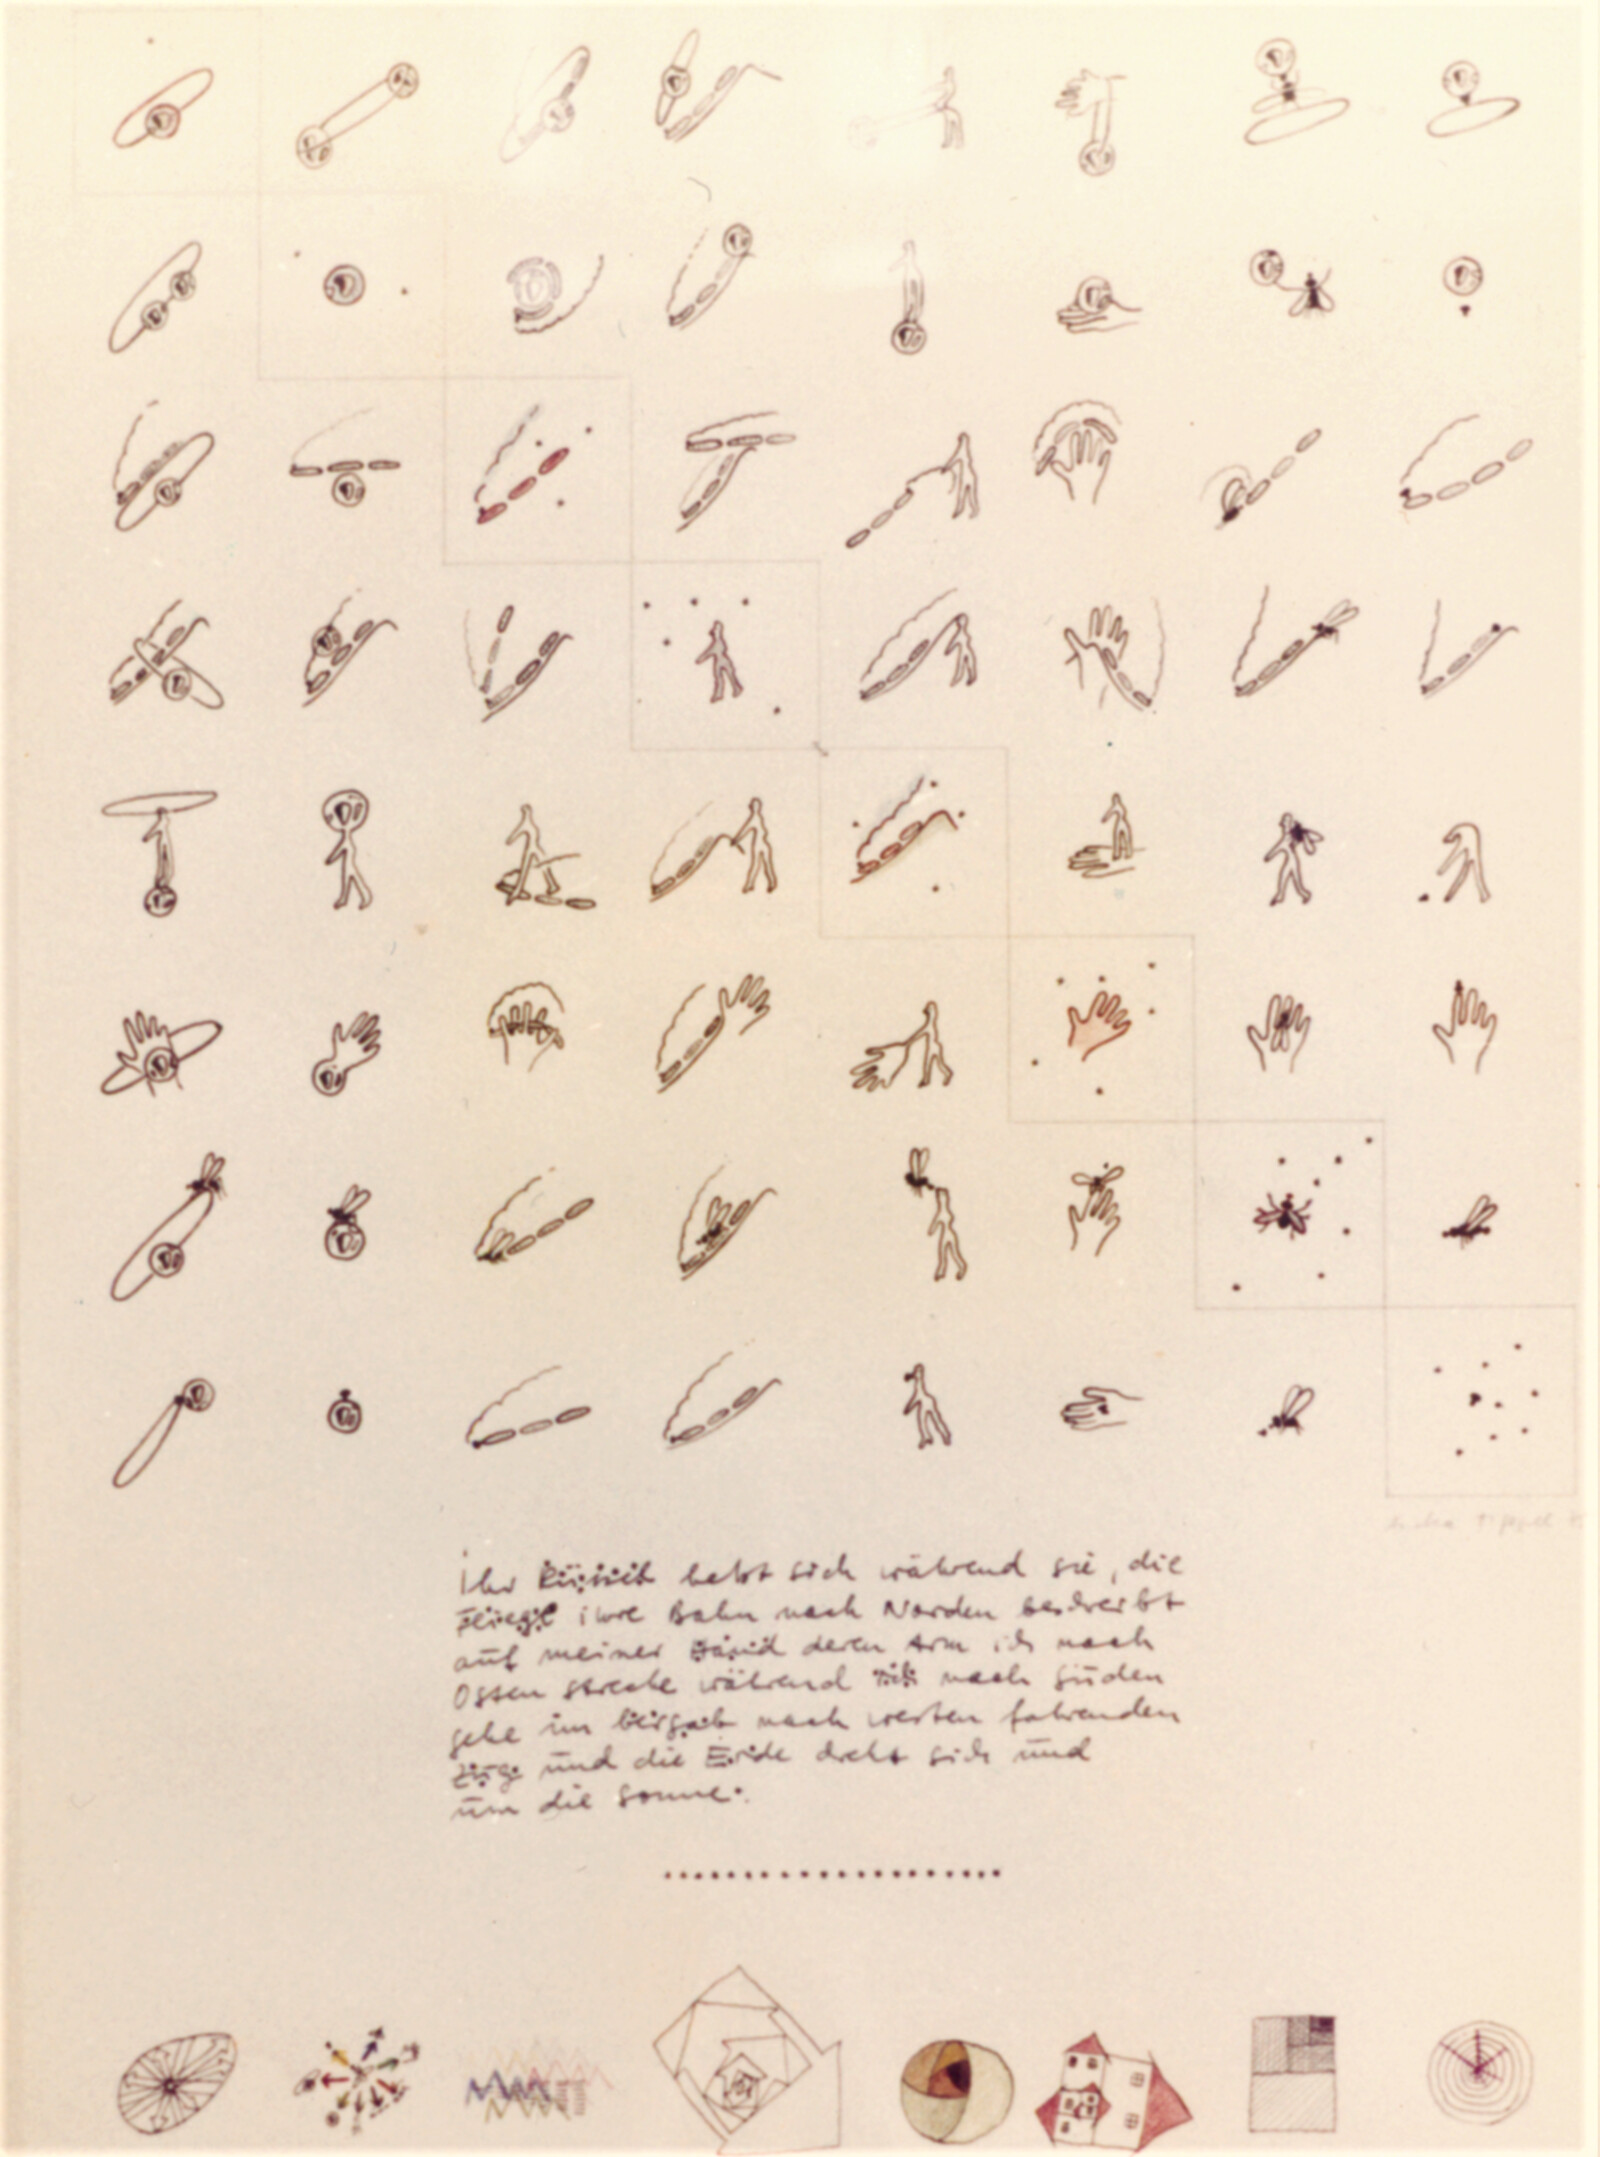 Ihr Rüssel hebt sich während sie, die
Fliege ihre Bahn nach Norden beschreibt
auf meiner Hand deren Arm ich nach
Osten strecke während ich nach Süden
gehe im bergab nach westen fahrenden
Zug und die Erde dreht sich und
um die Sonne.